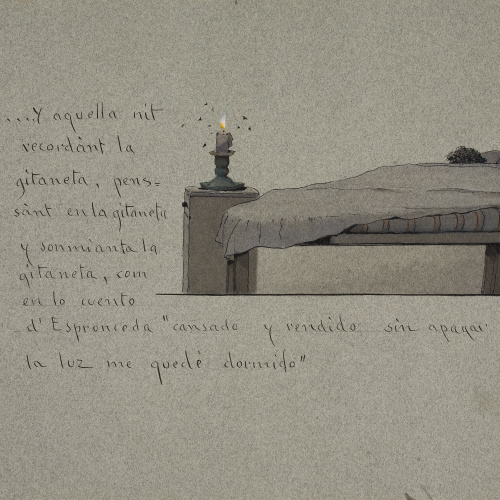 ...Y aquella nit
recordànt la
gitaneta, pens=
sànt en la gitaneta
y sonmianta la
gitaneta, com
en lo cuento
d' Espronceda "cansado y rendido sin apagar
la luz me quedé dormido"